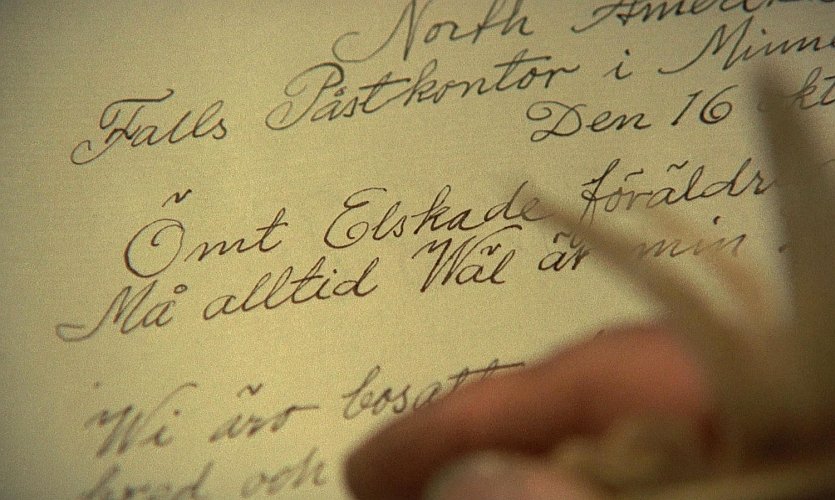 North Amerik
Falls Påstkontor i Minne
Den 16 kt
Ömt Elskade föräldr
Må alltid Wäl är min
Wi äro bosatt
bred och